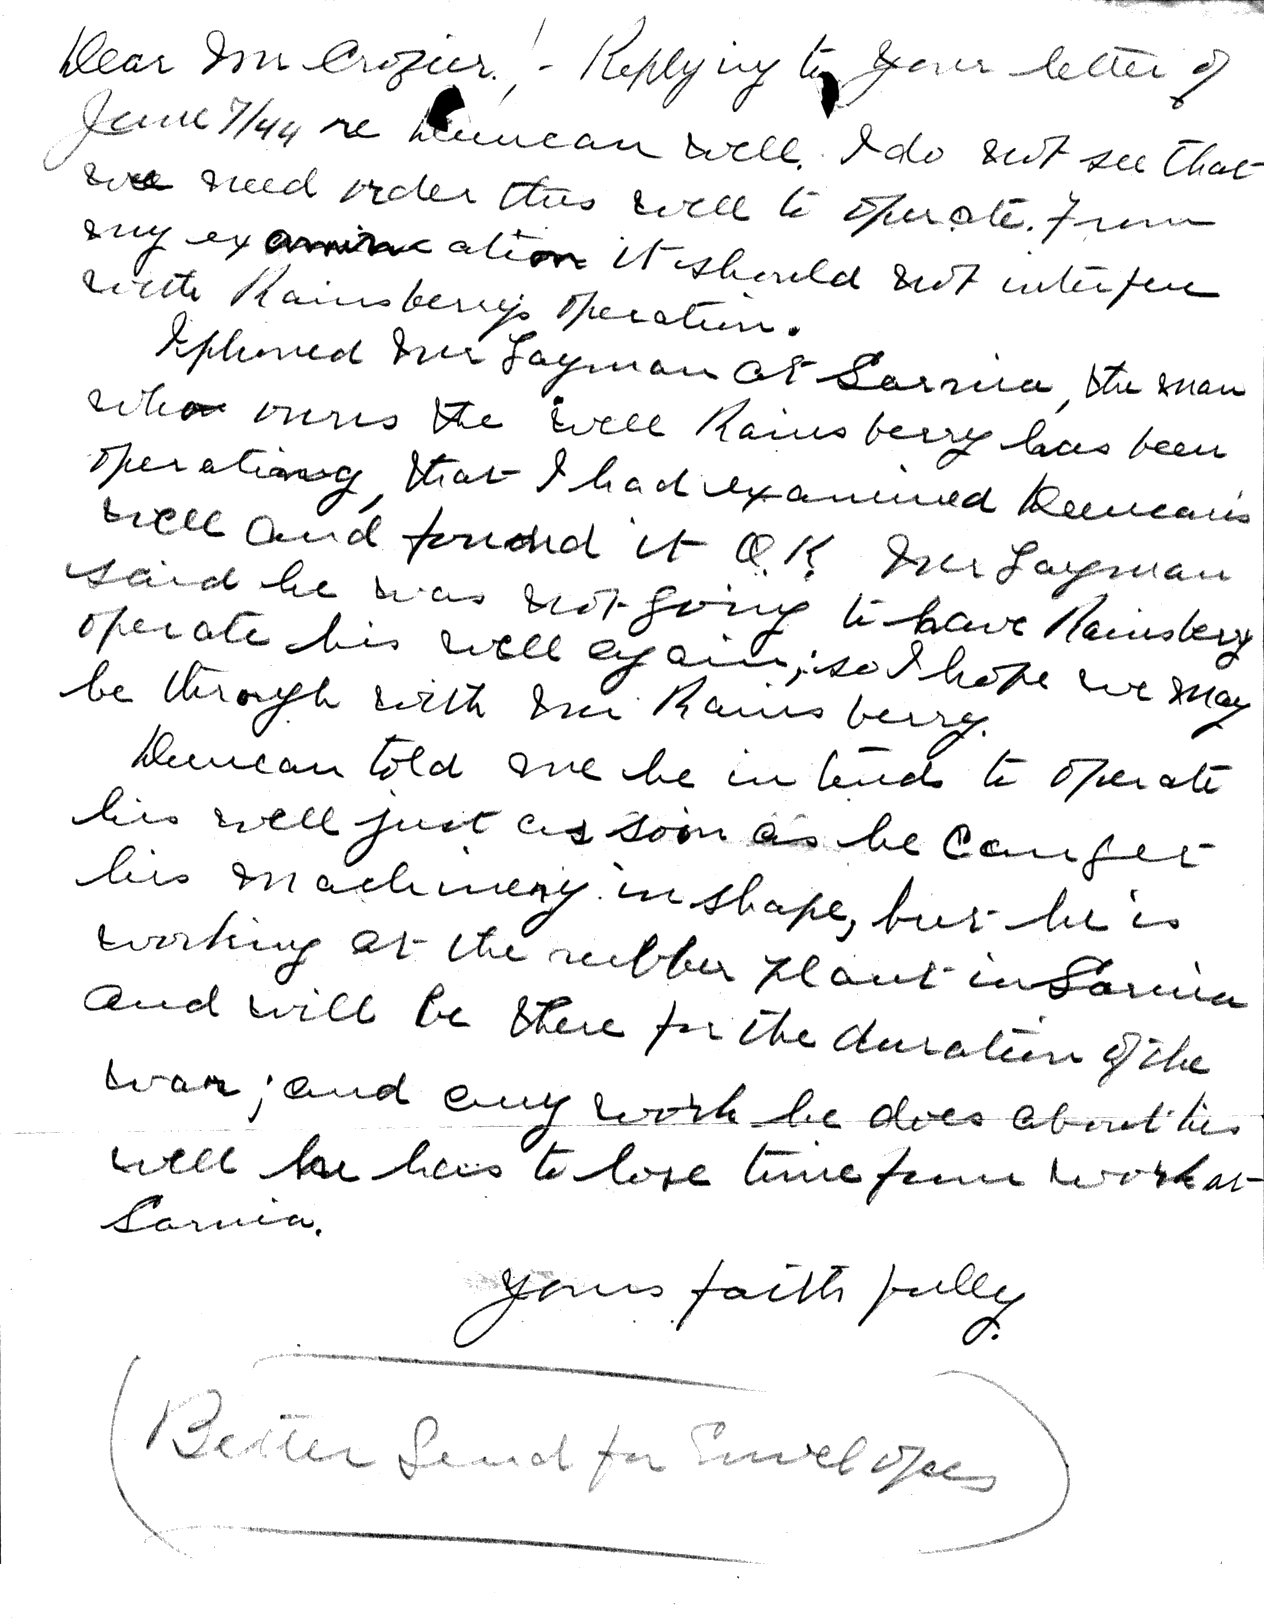 Dear Mr Crozier! - Replying to your letter of
June 7/44 re Duncan well. I do not see that
we need order this well to operate. From
my examination it should not interfere
with Rainsberry's operation.
I phoned Mr Layman at Sarnia, the man
who owns the well Rainsberry has been
operating, that I had examined Duncan's
well and found it O.K. Mr Layman
said he was not going to have Rainsberry
operate his well again; so I hope we may
be through with Mr Rainsberry.
Duncan told me he intends to operate
his well just as soon as he can get
his machinery in shape, but he is
working at the rubber plant in Sarnia
and will be there for the duration of the
war; and any work he does about his
well he has to lose time from work at
Sarnia.
Yours faithfully.
(Better Send for Envelopes)